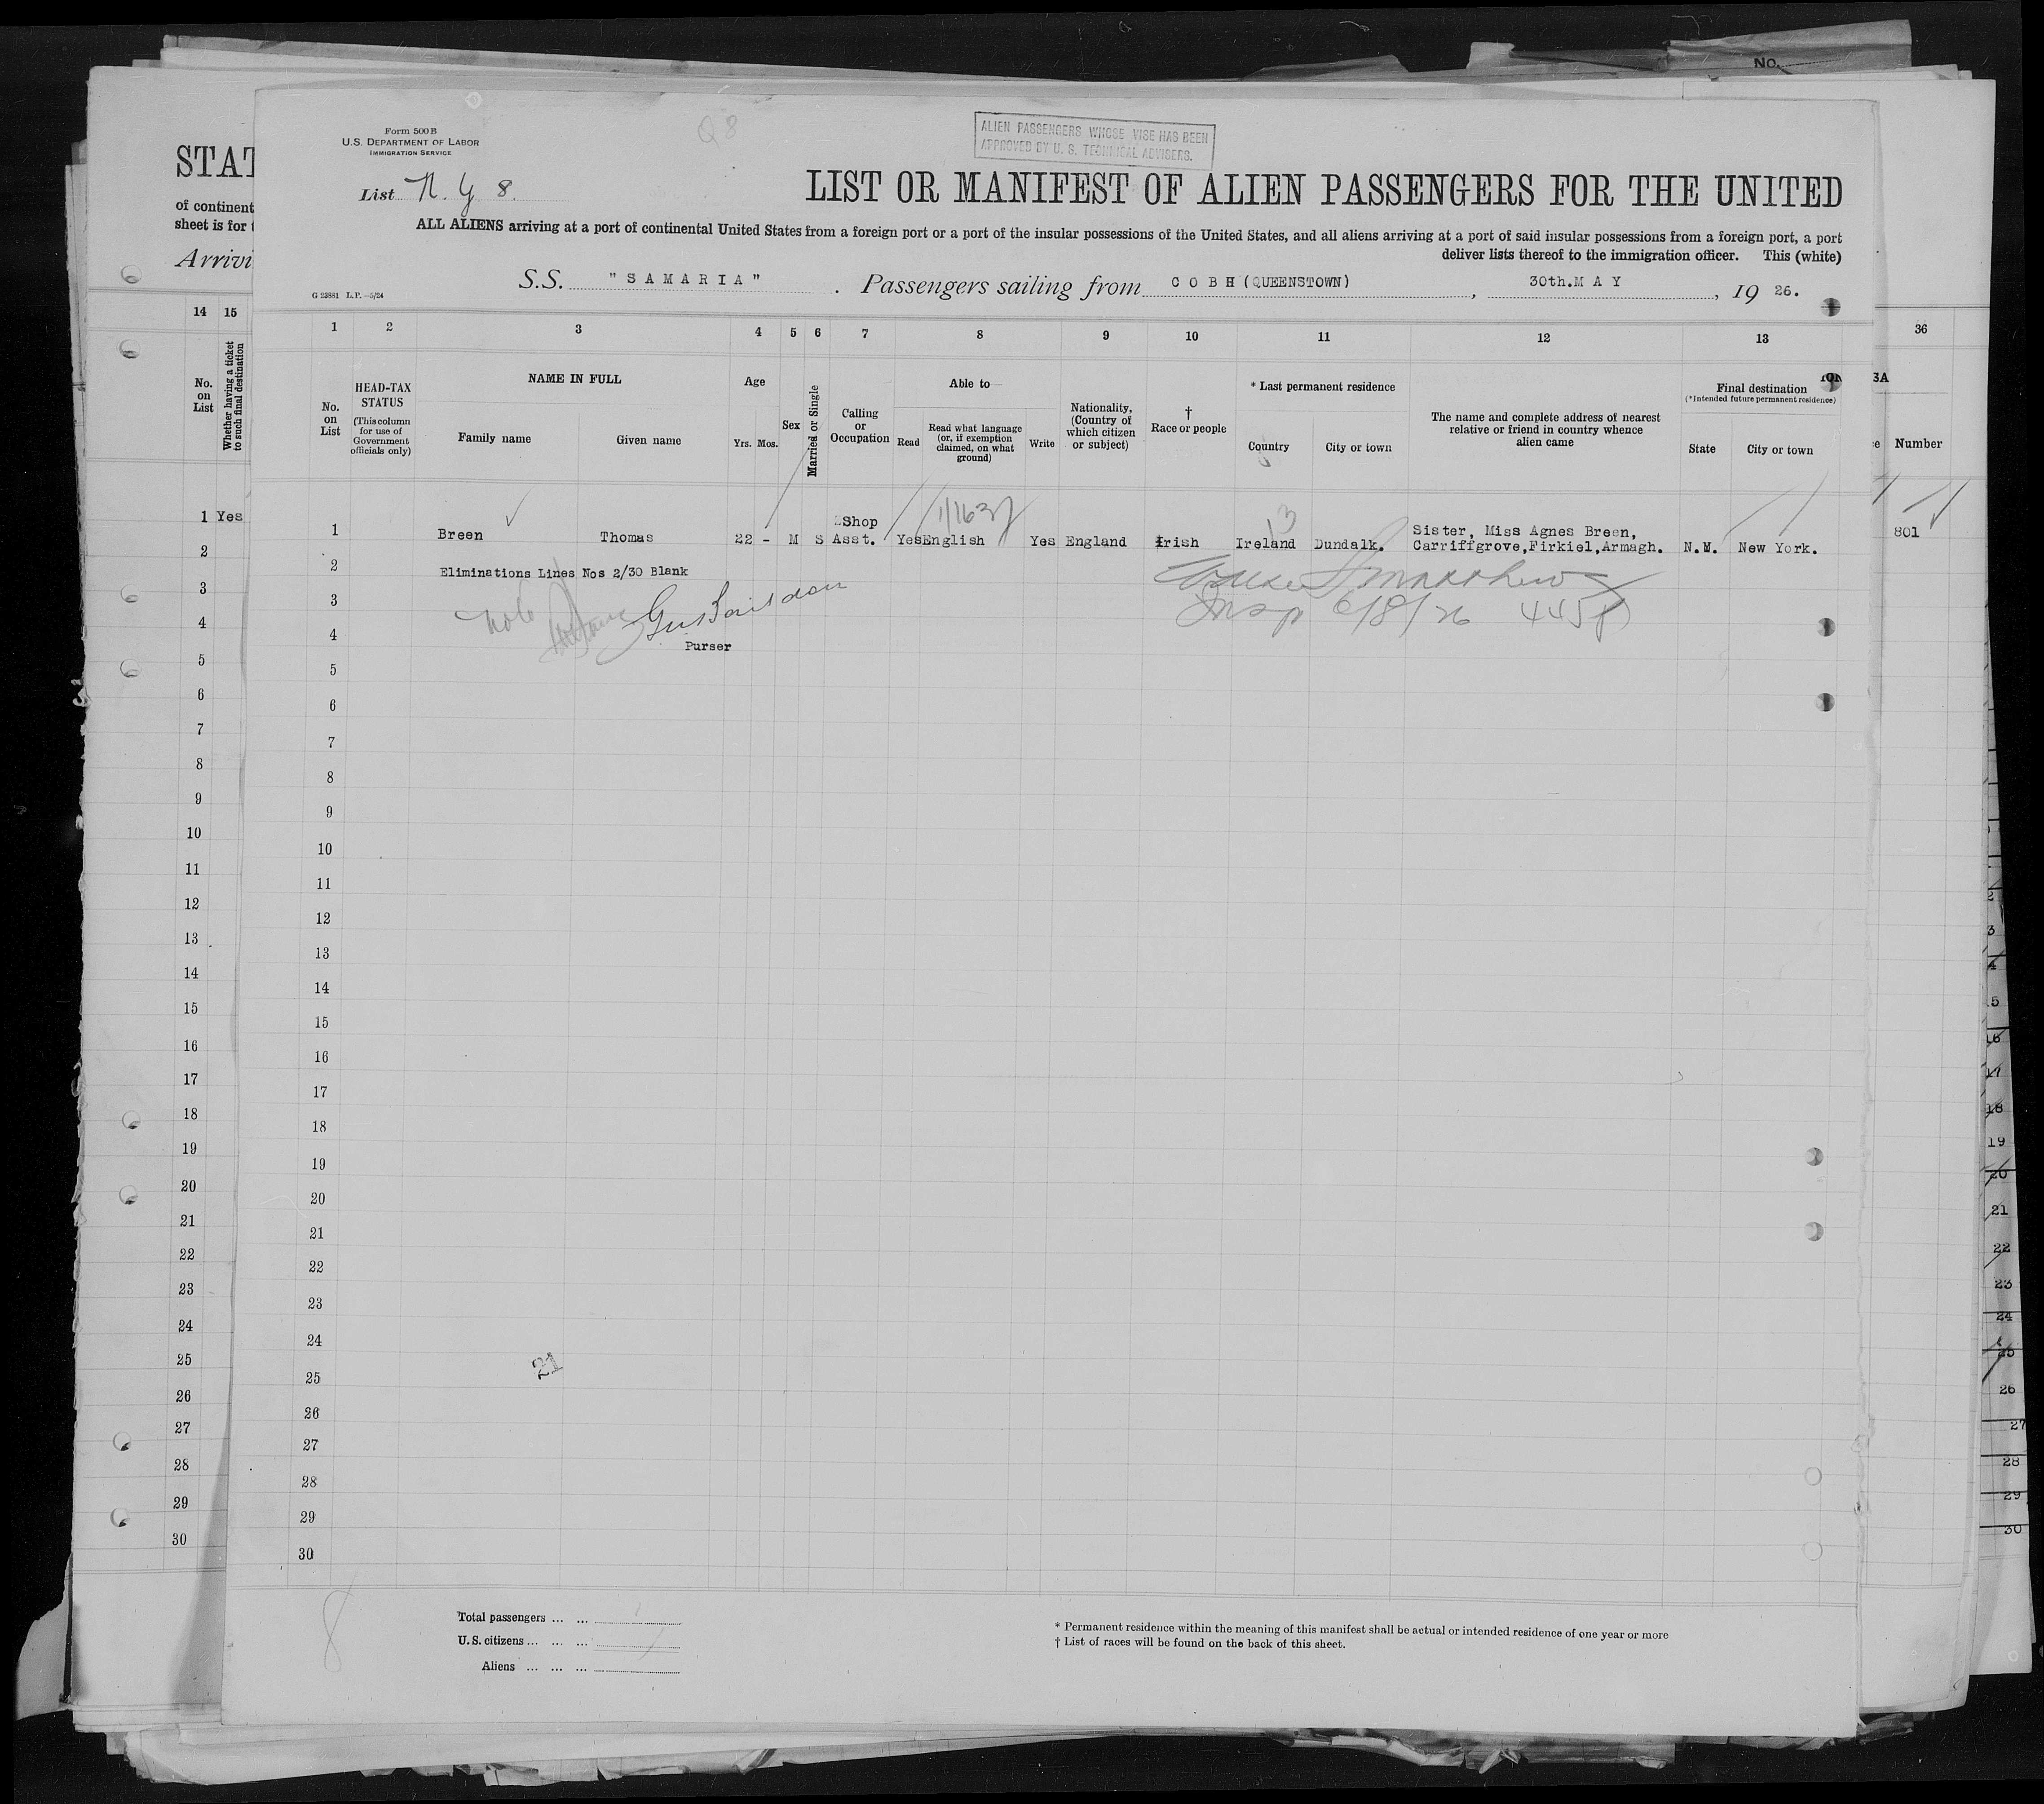 NO.
Form 500 B
U.S. DEPARTMENT OF LABOR
IMMIGRATION SERVICE
Q 8
ALIEN PASSENGERS WHOSE VISE HAS BEEN
APPROVED BY U. S. TECHNICAL ADVISERS.
STAT
List N. Y 8.
LIST OR MANIFEST OF ALIEN PASSENGERS FOR THE UNITED
of continent
sheet is for
ALL ALIENS arriving at a port of continental United States from a foreign port or a port of the insular possessions of the United States, and all aliens arriving at a port of said insular possessions from a foreign port, a port
deliver lists thereof to the immigration officer. This (white)
Arrivi
S.S. "SAMARIA". Passengers sailing from COBH (QUEENSTOWN), 30th. MAY, 19 26.
G 23881 L.P.—5/24
14 15
1 2 3 4 5 6 7 8 9 10 11 12 13
36
No. on List
Whether having a ticket to such final destination
No. on List
HEAD-TAX STATUS
(This column for use of Government officials only)
NAME IN FULL
Family name
Given name
Age
Yrs. Mos.
Sex
Married or Single
Calling or Occupation
Able to
Read
Read what language (or, if exemption claimed, on what ground)
Write
Nationality, (Country of which citizen or subject)
† Race or people
* Last permanent residence
Country
City or town
The name and complete address of nearest relative or friend in country whence alien came
Final destination
(*Intended future permanent residence)
State
City or town
3A
Number
1 Yes
1 Breen Thomas 22 - M S Shop Asst. Yes English Yes England Irish Ireland Dundalk. Sister, Miss Agnes Breen, Carriffgrove, Firkiel, Armagh. N.Y. New York.
801
13
2 Eliminations Lines Nos 2/30 Blank
Insp 6/8/26 445 P
Purser
2
3
4
5
6
7
8
9
10
11
12
13
14
15
16
17
18
19
20
21
22
23
24
25
26
27
28
29
30
3
4
5
6
7
8
9
10
11
12
13
14
15
16
17
18
19
20
21
22
23
24
25
26
27
28
29
30
21
8
Total passengers ... ...
U.S. citizens ... ... ...
Aliens ... ... ...
* Permanent residence within the meaning of this manifest shall be actual or intended residence of one year or more
† List of races will be found on the back of this sheet.